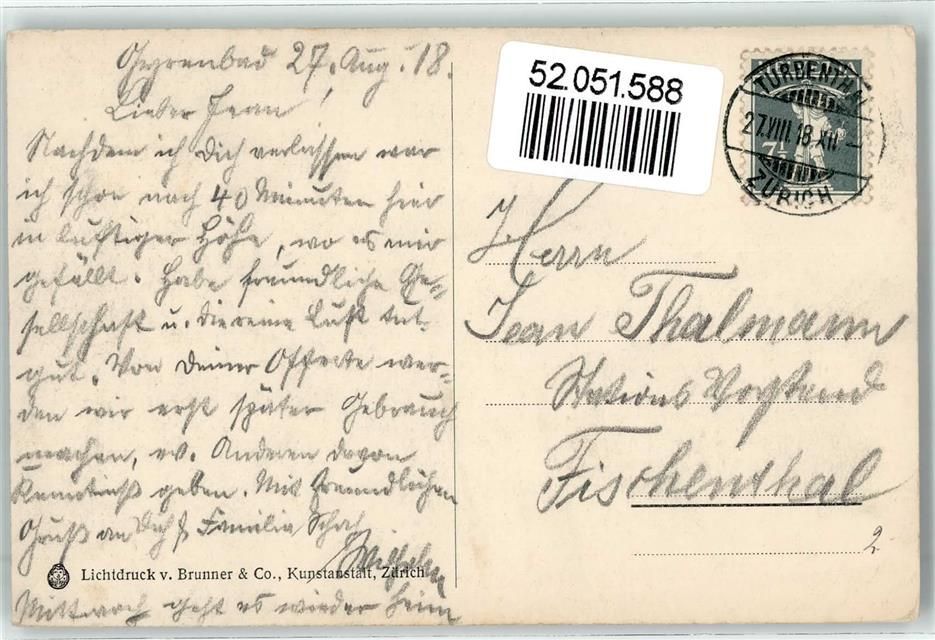 Gyrenbad 27. Aug. 18.
Lieber Jean!
Nachdem ich Dich verlassen war
ich schon nach 40 Minuten hier
in luftiger Höhe, wo es mir
gefällt. Habe freundliche Ge-
sellschaft u. die reine Luft tut
gut. Von Deiner Offerte wer-
den wir erst später Gebrauch
machen, ev. Anderen davon
Kenntniß geben. Mit freundlichem
Gruß an Dich & Familie
Wilhelm
Mittwoch geht es wieder heim
Lichtdruck v. Brunner & Co., Kunstanstalt, Zürich
52.051.588
TURBENTHAL
27.VIII.18.XII
ZÜRICH
7½
Herrn
Jean Thalmann
Stations Vorstand
Fischenthal
2